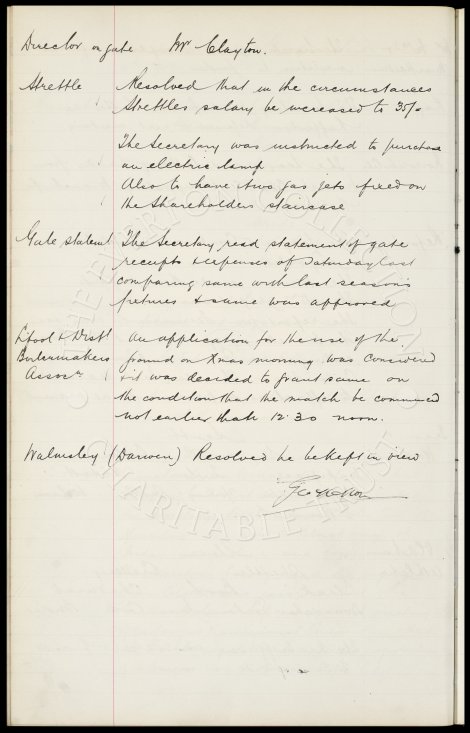 Director on gate Mr Clayton.
Strettle Resolved that in the circumstances
Strettles salary be increased to 35/-
The Secretary was instructed to purchase
an electric lamp
Also to have two gas jets fixed on
the Shareholders staircase
Gate statent The Secretary read statement of gate
receipts & expenses of Saturday last
comparing same with last season's
fixtures & same was approved
L'pool & Distt An application for the use of the
Boilermakers ground on Xmas morning was considered
Assocn & it was decided to grant same on
the condition that the match be commenced
not earlier than 12.30 noon.
Walmsley (Darwen) Resolved he be kept in view
Geo Mahon
THE EVERTON COLLECTION
CHARITABLE TRUST